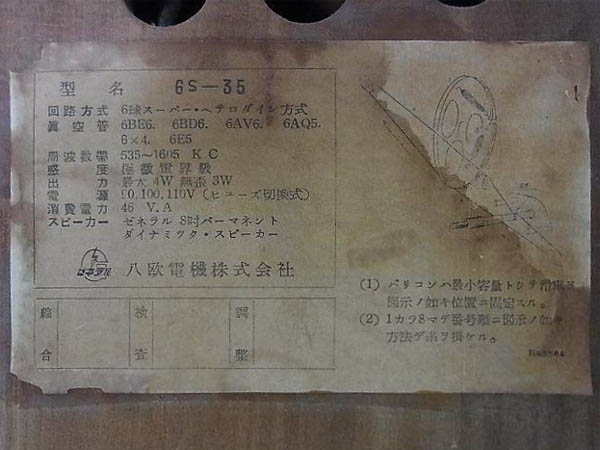 型名 6S-35
回路方式 6球スーパー・ヘテロダイン方式
眞空管 6BE6. 6BD6. 6AV6. 6AQ5.
6×4. 6E5
周波数帯 535~1605 KC
感度 極微電界級
出力 最大 4W 無歪 3W
電源 90,100,110V (ヒューズ切換式)
消費電力 46 V.A
スピーカー ゼネラル 8吋パーマネント
ダイナミツク・スピーカー
ゼネラル
八欧電機株式会社
綜合
検査
調整
(1) バリコンハ最小容量トシテ滑車ヲ
図示ノ如キ位置ニ固定スル。
(2) 1カラ8マデ番号順ニ図示ノ如キ
方法デ糸ヲ掛ケル。